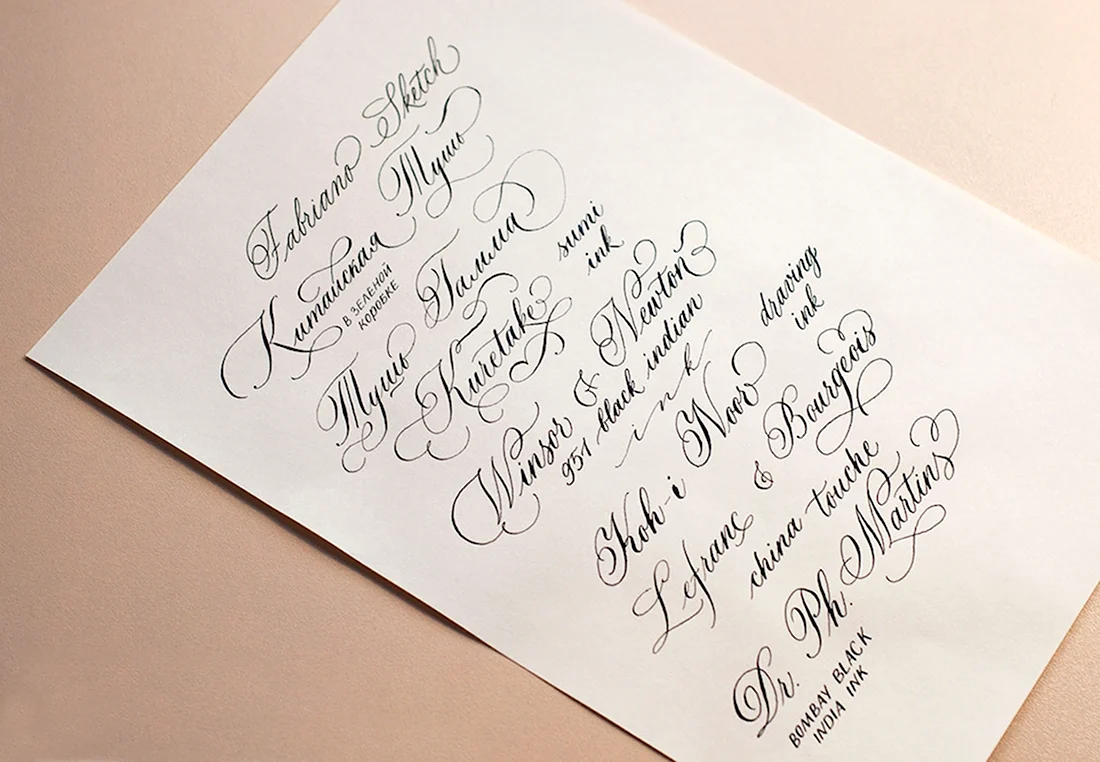 Fabriano Sketch
Китайская Тушь
в зеленой
коробке
Тушь Гамма
Kuretake sumi
ink
Winsor & Newton
951 black indian
ink
Koh-i Noor drawing
ink
Lefranc & Bourgeois
china-touche
Dr. Ph. Martins
BOMBAY BLACK
INDIA INK